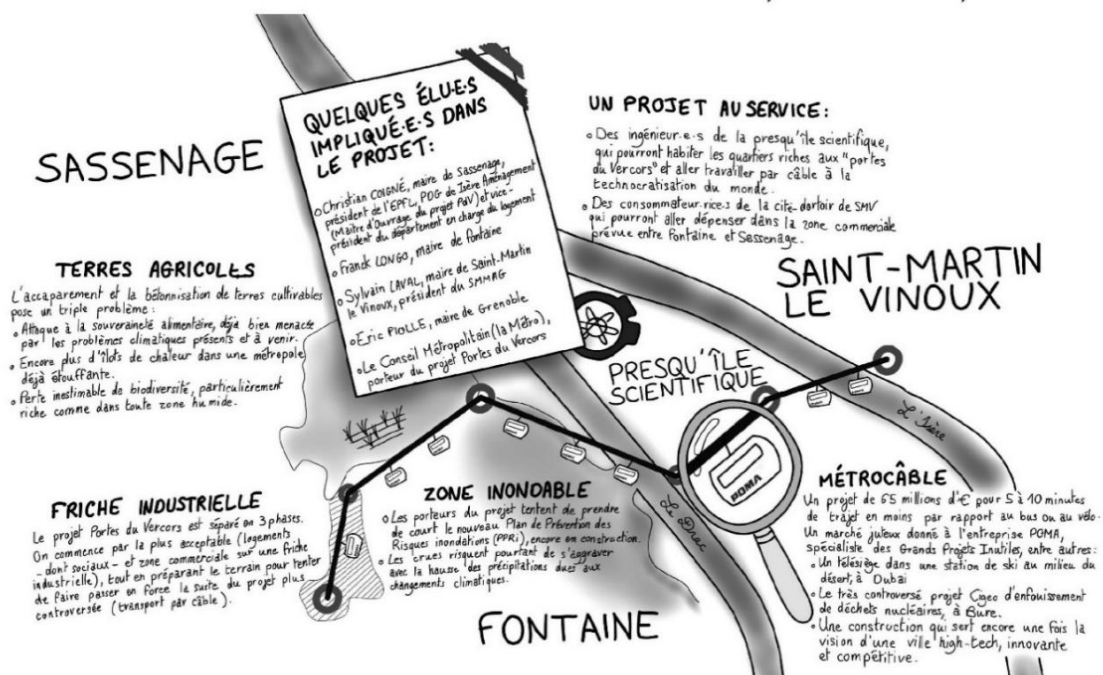 SASSENAGE
QUELQUES ÉLU·E·S
IMPLIQUÉ·E·S DANS
LE PROJET:
o Christian COIGNÉ, maire de Sassenage,
président de l'EPFL, PDG de Isère Aménagement
(Maître d'Ouvrage du projet PdV) et vice-
président du département en charge du logement
o Franck LONGO, maire de Fontaine
o Sylvain LAVAL, maire de Saint-Martin
le Vinoux, président du SMMAG
o Eric PIOLLE, maire de Grenoble
o Le Conseil Métropolitain (la Métro),
porteur du projet Portes du Vercors
UN PROJET AU SERVICE:
o Des ingénieur·e·s de la presqu'île scientifique,
qui pourront habiter les quartiers riches aux "portes
du Vercors" et aller travailler par câble à la
technocratisation du monde.
o Des consommateur·rice·s de la cité-dortoir de SMV
qui pourront aller dépenser dans la zone commerciale
prévue entre Fontaine et Sassenage.
TERRES AGRICOLES
L'accaparement et la bétonnisation de terres cultivables
pose un triple problème:
o Attaque à la souveraineté alimentaire, déjà bien menacée
par les problèmes climatiques présents et à venir.
o Encore plus d'îlots de chaleur dans une métropole
déjà étouffante.
o Perte inestimable de biodiversité, particulièrement
riche comme dans toute zone humide.
SAINT-MARTIN
LE VINOUX
PRESQU'ÎLE
SCIENTIFIQUE
L'Isère
POMA
Le Drac
FRICHE INDUSTRIELLE
Le projet Portes du Vercors est séparé en 3 phases.
On commence par la plus acceptable (logements
- dont sociaux - et zone commerciale sur une friche
industrielle), tout en préparant le terrain pour tenter
de faire passer en force la suite du projet plus
controversée (transport par câble).
ZONE INONDABLE
o Les porteurs du projet tentent de prendre
de court le nouveau Plan de Prévention des
Risques inondations (PPRi), encore en construction.
o Les crues risquent pourtant de s'aggraver
avec la hausse des précipitations dues aux
changements climatiques.
FONTAINE
MÉTROCÂBLE
Un projet de 65 millions d'€ pour 5 à 10 minutes
de trajet en moins par rapport au bus ou au vélo.
Un marché juteux donné à l'entreprise POMA,
spécialiste des Grands Projets Inutiles, entre autres:
o Un télésiège dans une station de ski au milieu du
désert, à Dubaï
o Le très controversé projet Cigeo d'enfouissement
de déchets nucléaires, à Bure.
o Une construction qui sert encore une fois la
vision d'une ville high-tech, innovante
et compétitive.